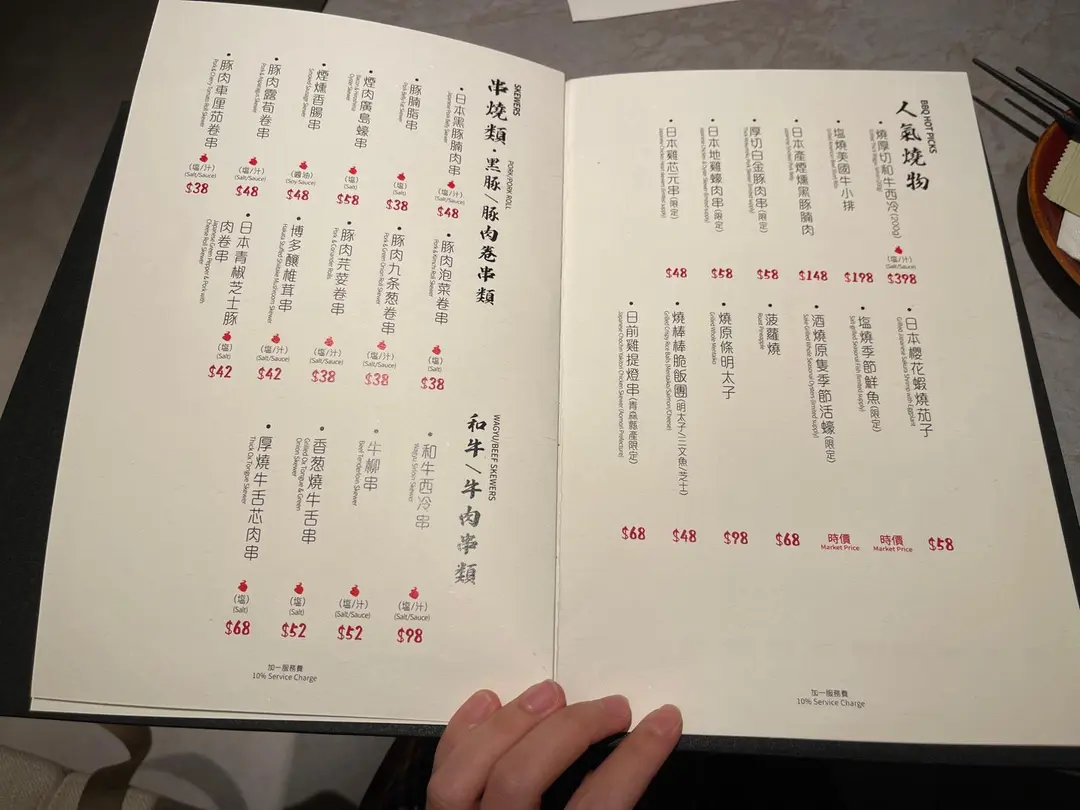 BBQ HOT PICKS
人氣燒物
燒厚切和牛西冷(200g)
(塩/汁)
(Salt/Sauce)
$398
塩燒美國牛小排
$198
日本產煙燻黑豚腩肉
$148
厚切白金豚肉串(限定)
$58
日本地雞蠔肉串(限定)
$58
日本雞芯元串(限定)
$48
日本櫻花蝦燒茄子
Grilled Japanese Sakura Shrimp with Eggplant
$58
塩燒季節鮮魚(限定)
Salt-grilled Seasonal Fish (limited supply)
時價
Market Price
酒燒原隻季節活蠔(限定)
Sake Grilled Whole Seasonal Oysters (limited supply)
時價
Market Price
菠蘿燒
Roast Pineapple
$68
燒原條明太子
Grilled Whole Mentaiko
$98
燒棒棒脆飯團(明太子/三文魚/芝士)
Grilled Crispy Rice Balls (Mentaiko/Salmon/Cheese)
$48
日前雞提燈串(青森縣產限定)
Japanese Chochin Yakitori Chicken Skewer (Aomori Prefecture)
$68
加一服務費
10% Service Charge
SKEWERS
串燒類
PORK/PORK ROLL
・黑豚/豚肉卷串類
日本黑豚腩肉串
Japanese Pork Belly Skewer
(塩/汁)
(Salt/Sauce)
$48
豚腩脂串
Pork Belly Fat Skewer
(塩)
(Salt)
$38
煙肉廣島蠔串
Bacon & Hiroshima Oyster Skewer
(塩)
(Salt)
$58
煙燻香腸串
Smoked Sausage Skewer
(醬油)
(Soy Sauce)
$48
豚肉露荀卷串
Pork & Asparagus Skewer
(塩/汁)
(Salt/Sauce)
$48
豚肉車厘茄卷串
Pork & Cherry Tomato Roll Skewer
(塩/汁)
(Salt/Sauce)
$38
豚肉泡菜卷串
Pork & Kimchi Roll Skewer
(塩)
(Salt)
$38
豚肉九条葱卷串
Pork & Green Onion Roll Skewer
(塩/汁)
(Salt/Sauce)
$38
豚肉芫荽卷串
Pork & Coriander Rolls
(塩/汁)
(Salt/Sauce)
$38
博多釀椎茸串
Hakata Stuffed Shiitake Mushroom Skewer
(塩/汁)
(Salt/Sauce)
$42
日本青椒芝士豚肉卷串
Japanese Green Pepper & Pork with Cheese Roll Skewer
(塩)
(Salt)
$42
WAGYU/BEEF SKEWERS
和牛/牛肉串類
和牛西冷串
Wagyu Sirloin Skewer
(塩/汁)
(Salt/Sauce)
$98
牛柳串
Beef Tenderloin Skewer
(塩/汁)
(Salt/Sauce)
$52
香葱燒牛舌串
Grilled Ox Tongue & Green Onion Skewer
(塩)
(Salt)
$52
厚燒牛舌芯肉串
Thick Ox Tongue Skewer
(塩)
(Salt)
$68
加一服務費
10% Service Charge